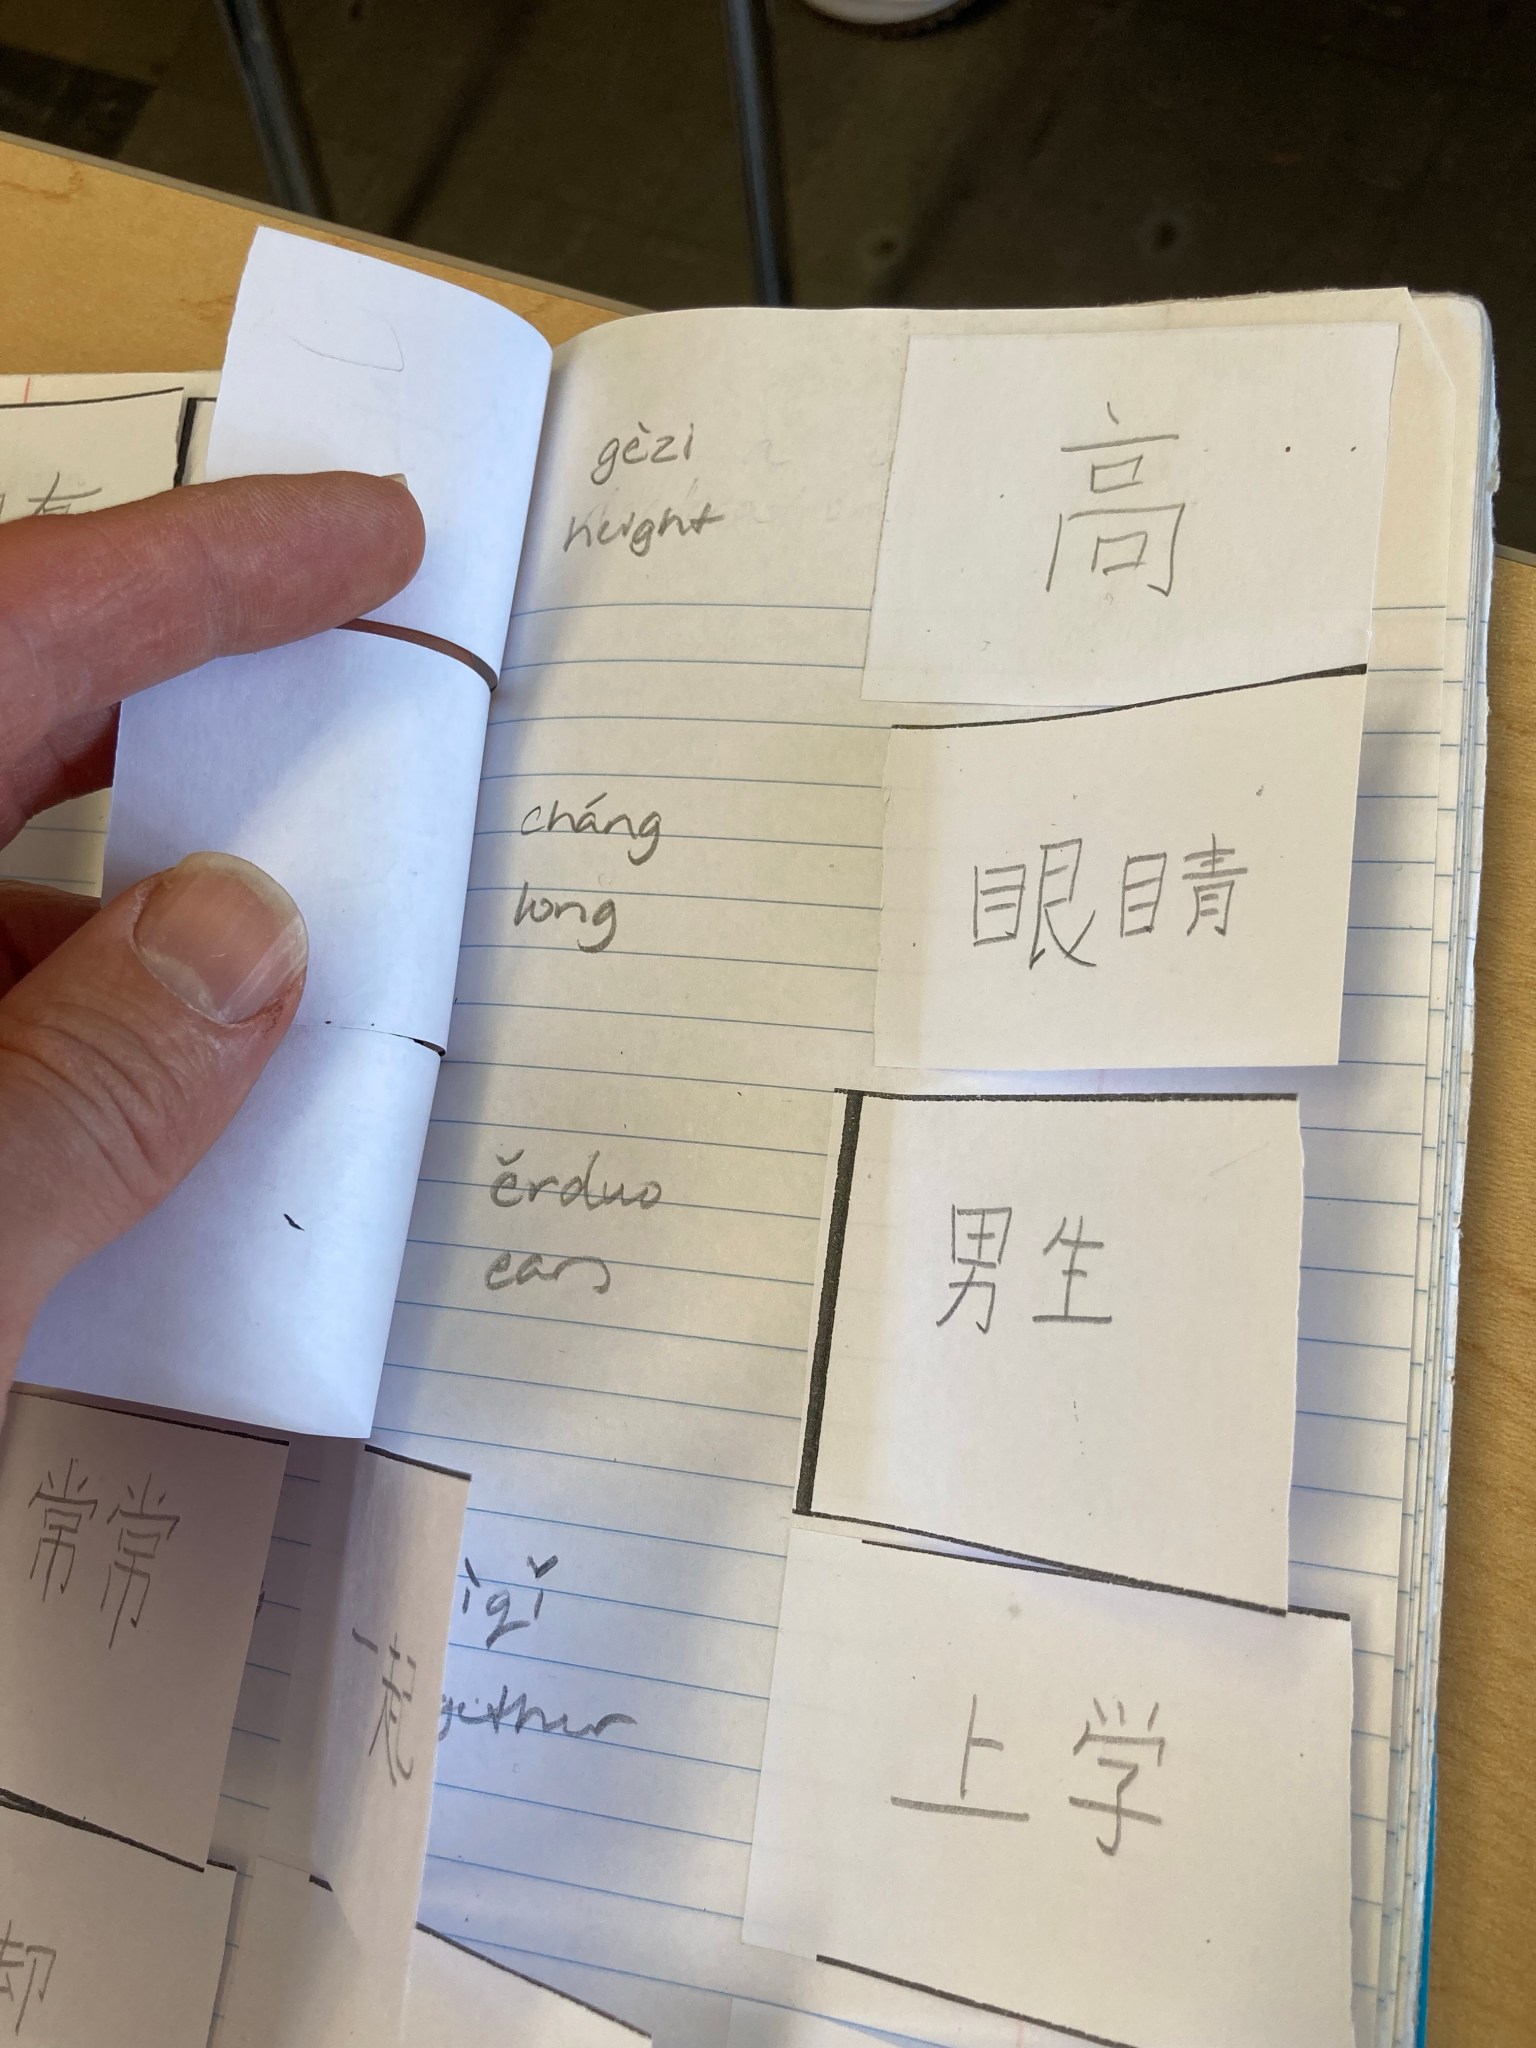 gèzi
height
高
cháng
long
眼睛
ěrduo
ears
男生
常常
一起
ìqǐ
gether
上学
却